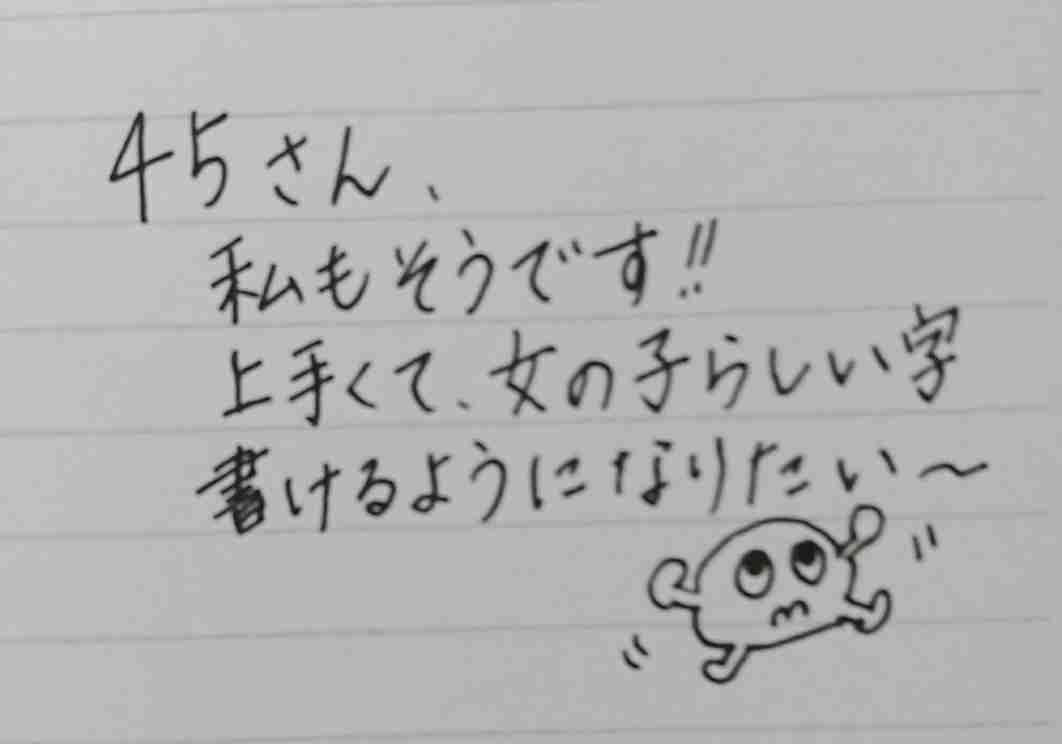 45さん、
私もそうです!!
上手くて、女の子らしい字
書けるようになりたい〜